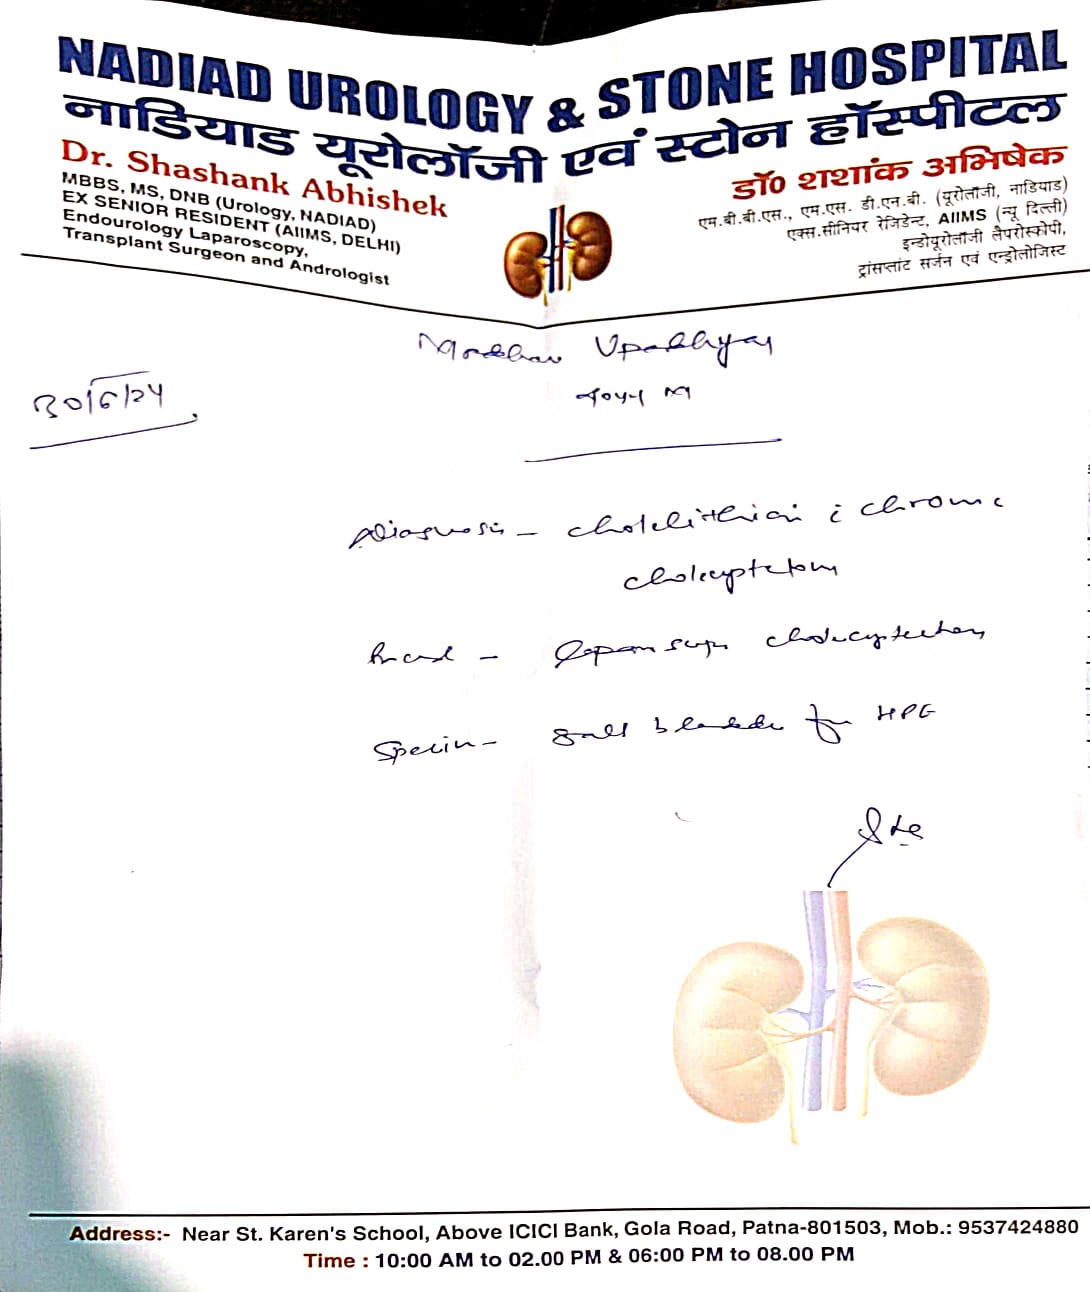 NADIAD UROLOGY & STONE HOSPITAL
नाडियाड यूरोलॉजी एवं स्टोन हॉस्पीटल
Dr. Shashank Abhishek
MBBS, MS, DNB (Urology, NADIAD)
EX SENIOR RESIDENT (AIIMS, DELHI)
Endourology Laparoscopy,
Transplant Surgeon and Andrologist
डॉ० शशांक अभिषेक
एम.बी.बी.एस., एम.एस. डी.एन.बी. (यूरोलॉजी, नाडियाड)
एक्स.सीनियर रेजिडेन्ट, AIIMS (न्यू दिल्ली)
इन्डोयूरोलॉजी लैपरोस्कोपी,
ट्रांसप्लांट सर्जन एवं एन्ड्रोलोजिस्ट
Madhav Upadhyay
30/6/24
M
Diagnosis - cholelithiasis c chronic
Laparoscopic cholecystectomy
Specimen - Gall bladder for HPE
Address:- Near St. Karen's School, Above ICICI Bank, Gola Road, Patna-801503, Mob.: 9537424880
Time : 10:00 AM to 02.00 PM & 06:00 PM to 08.00 PM